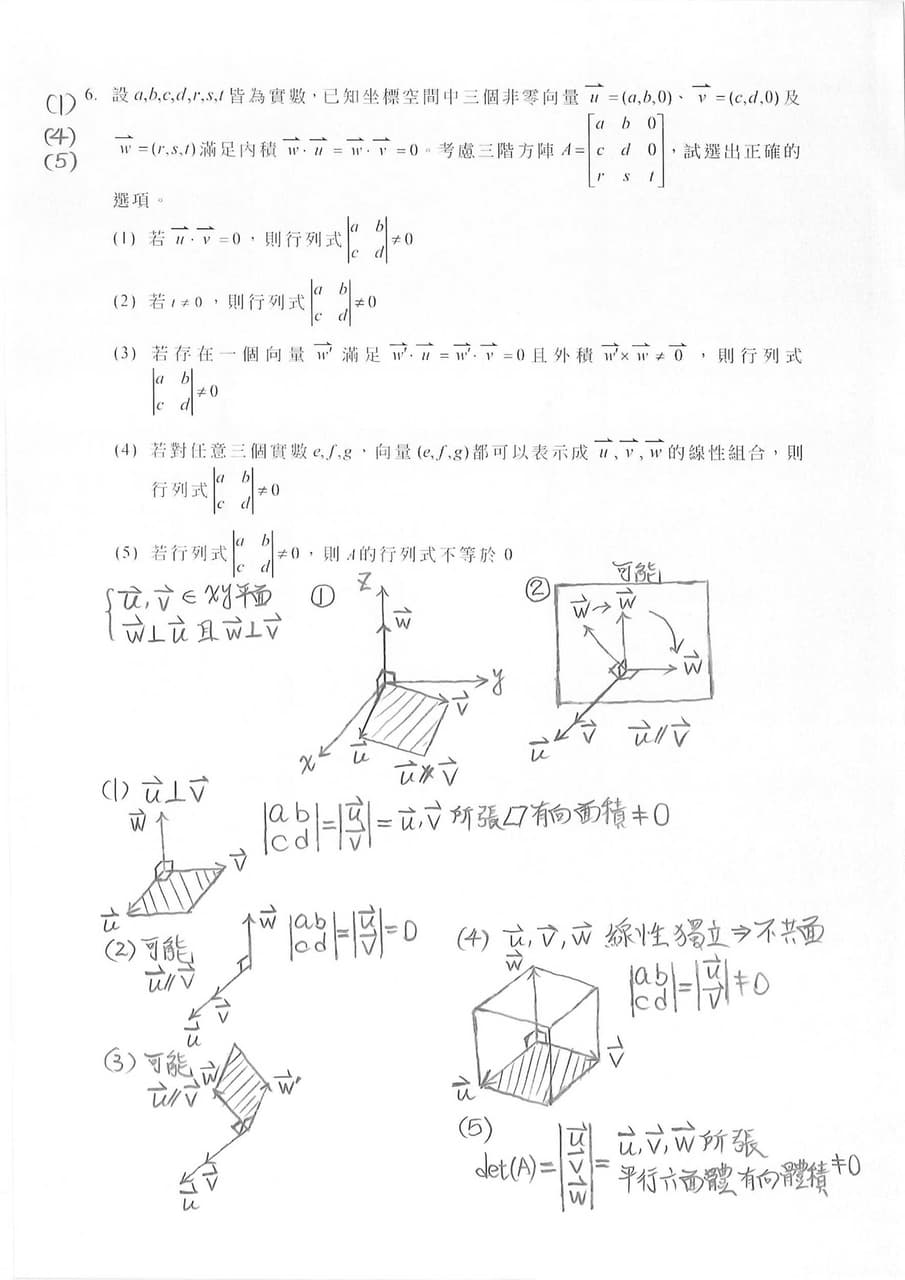 (1) 6. 設 a,b,c,d,r,s,t 皆為實數，已知坐標空間中三個非零向量 u⃗ =(a,b,0)、v⃗ =(c,d,0) 及
(4)
(5) w⃗ =(r,s,t) 滿足內積 w⃗ · u⃗ = w⃗ · v⃗ =0。考慮三階方陣 A= [a b 0; c d 0; r s t]，試選出正確的
選項。
(1) 若 u⃗ · v⃗ =0，則行列式 |a b; c d| ≠0
(2) 若 t≠0，則行列式 |a b; c d| ≠0
(3) 若存在一個向量 w⃗' 滿足 w⃗' · u⃗ = w⃗' · v⃗ =0 且外積 w⃗' × w⃗ ≠ 0⃗，則行列式
|a b; c d| ≠0
(4) 若對任意三個實數 e,f,g，向量 (e,f,g) 都可以表示成 u⃗ , v⃗ , w⃗ 的線性組合，則
行列式 |a b; c d| ≠0
(5) 若行列式 |a b; c d| ≠0，則 A 的行列式不等於 0
{ u⃗, v⃗ ∈ xy平面
w⃗⊥u⃗ 且 w⃗⊥v⃗
①
z
w⃗
y
v⃗
x
u⃗
u⃗ ∦ v⃗
②
可能
w⃗ → w⃗
w⃗
v⃗
u⃗
u⃗ // v⃗
(1) u⃗⊥v⃗
w⃗
v⃗
u⃗
|a b; c d| = |u⃗; v⃗| = u⃗, v⃗ 所張▱有向面積 ≠ 0
(2) 可能
u⃗ // v⃗
w⃗
v⃗
u⃗
|a b; c d| = |u⃗; v⃗| = 0
(3) 可能
u⃗ // v⃗
w⃗
w⃗'
v⃗
u⃗
(4) u⃗, v⃗, w⃗ 線性獨立 ⇒ 不共面
w⃗
v⃗
u⃗
|a b; c d| = |u⃗; v⃗| ≠ 0
(5)
det(A) = |u⃗; v⃗; w⃗| = u⃗, v⃗, w⃗ 所張
平行六面體有向體積 ≠ 0